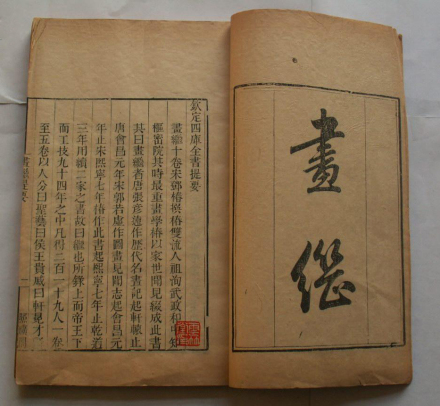 畫繼
欽定四庫全書提要
畫繼十卷宋鄧椿撰椿雙流人祖洵武政和中知
樞密院其時最重畫學椿以家世聞見綴成此書
其曰畫繼者唐張彦遠作歷代名畫記起軒轅止
唐會昌元年宋郭若虛作圖畫見聞志起會昌元
年止宋熙寧七年椿作此書起熙寧七年止乾道
三年用續二家之書故曰繼也所錄上而帝王下
而工技九十四年之中凡得二百一十九人一卷
至五卷以人分曰聖藝曰侯王貴戚曰軒冕才
畫繼提要
一